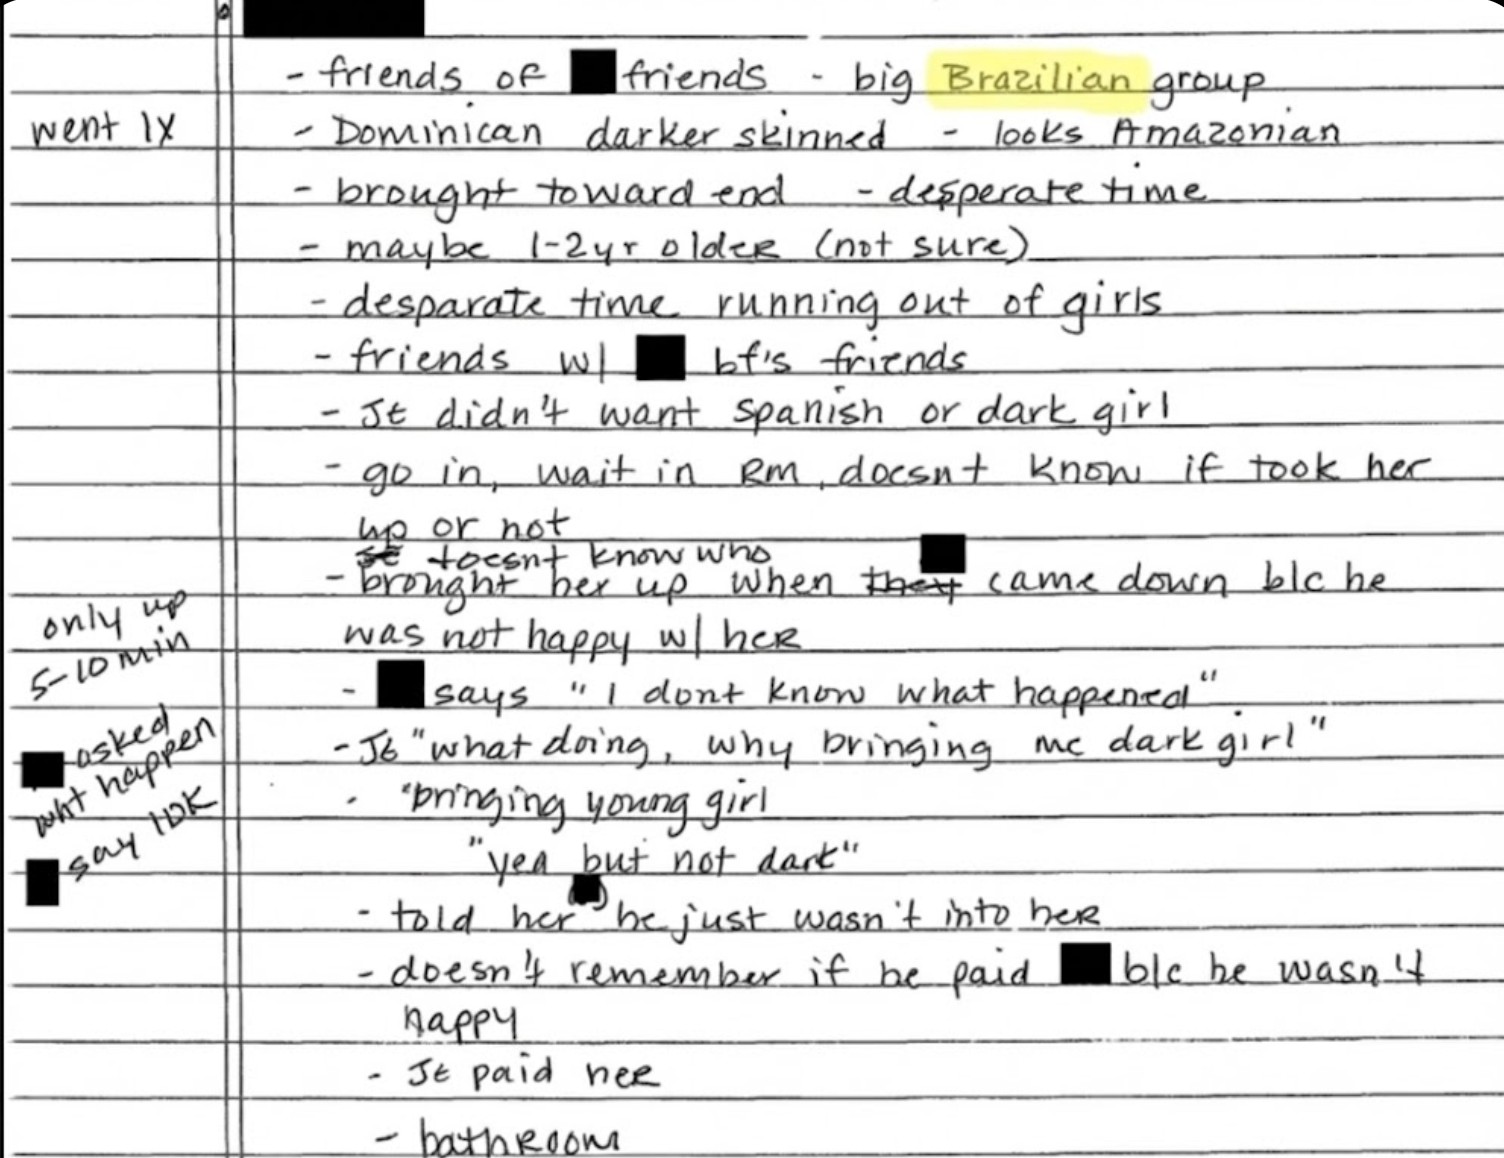 - friends of friends - big Brazilian group
went 1x
- Dominican darker skinned - looks Amazonian
- brought toward end - desperate time
- maybe 1-2yr older (not sure)
- desparate time running out of girls
- friends w/ bf's friends
- JE didn't want spanish or dark girl
- go in, wait in RM, doesnt know if took her
up or not
doesnt know who
- brought her up when they came down b/c he
was not happy w/ her
only up
5-10 min
- says "I dont know what happened"
asked
what happen
say IDK
- JE "what doing, why bringing me dark girl"
- "bringing young girl
"yea but not dark"
- told her he just wasn't into her
- doesn't remember if he paid b/c he wasn't
happy
- JE paid her
- bathroom